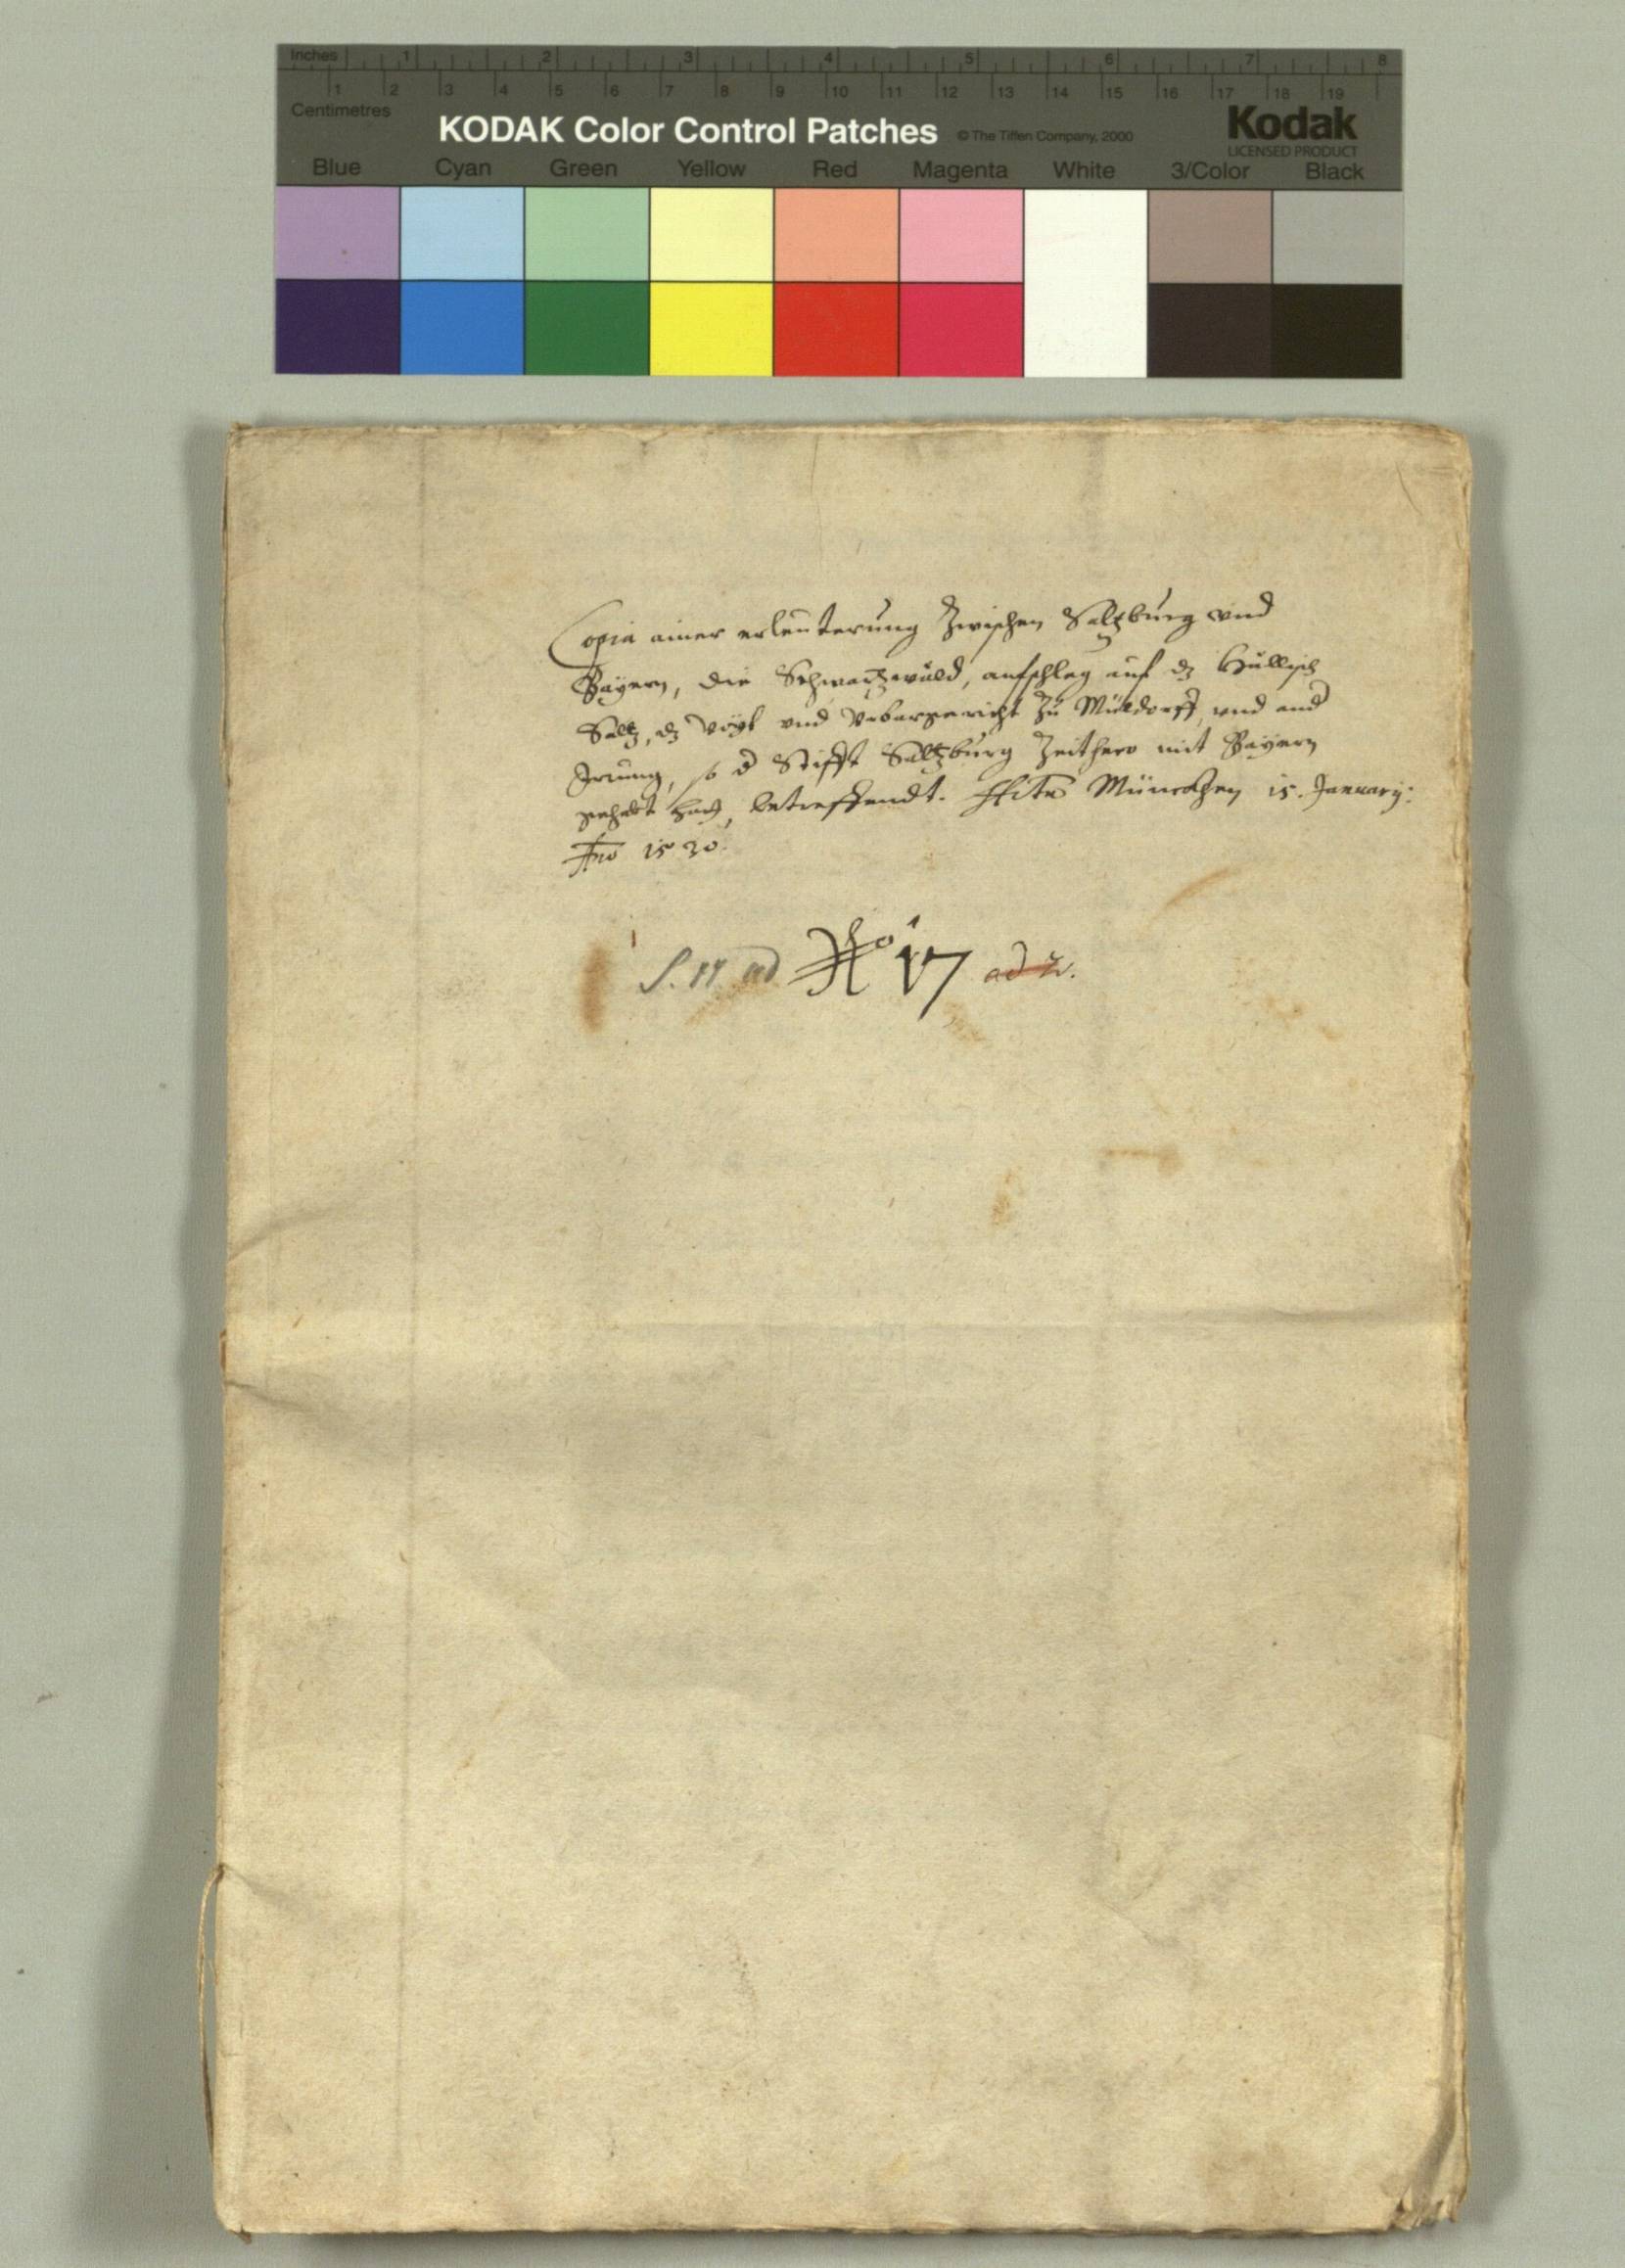 Inches 1 2 3 4 5 6 7 8
1 2 3 4 5 6 7 8 9 10 11 12 13 14 15 16 17 18 19
Centimetres
KODAK Color Control Patches © The Tiffen Company, 2000 Kodak
LICENSED PRODUCT
Blue Cyan Green Yellow Red Magenta White 3/Color Black
Copia ainer erleuterung Zwischen Saltzburg vnd
Bayern, die Schwartzwäld, aufschlag auf dz Hällisch
Saltz, dz Vogt vnd Vrbargericht Zu Müldorff, vnd and
Irrung, so d Stifft Saltzburg Zeithero mit Bayern
gehabt hat, betreffendt. Actũ München 15. January:
Año 1530.
ad No 17 ad 2.